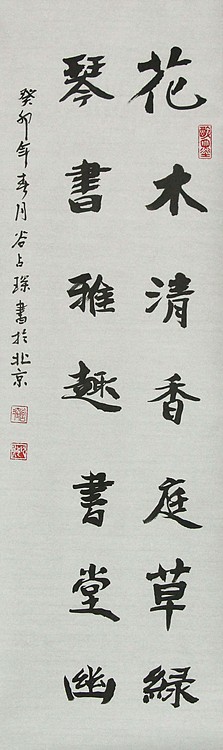 花木清香庭草緑
琴書雅趣書堂幽
癸卯年春月谷占琛書於北京